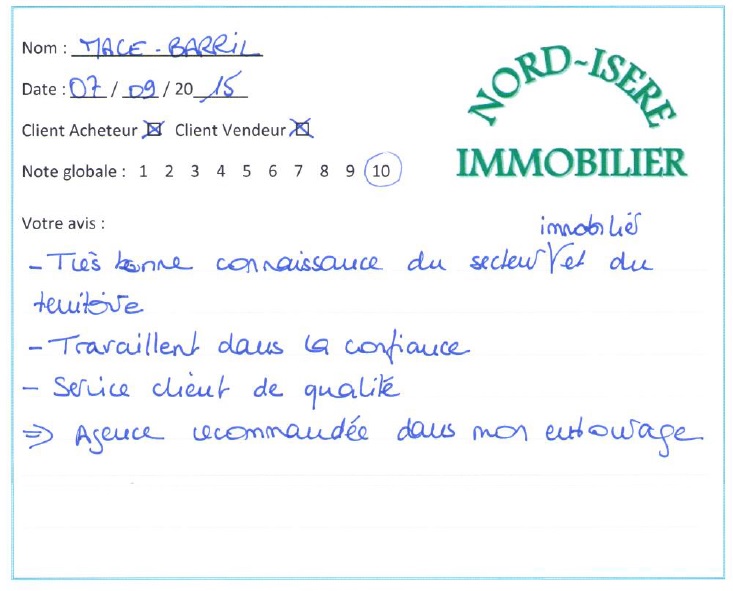 Nom : MACE - BARRIL
NORD-ISERE
Date : 07 / 09 / 20 15
Client Acheteur ☒ Client Vendeur ☒
IMMOBILIER
Note globale : 1 2 3 4 5 6 7 8 9 10
Votre avis :
immobilier
- Très bonne connaissance du secteur et du
territoire
- Travaillent dans la confiance
- Service client de qualité
=> Agence recommandée dans mon entourage